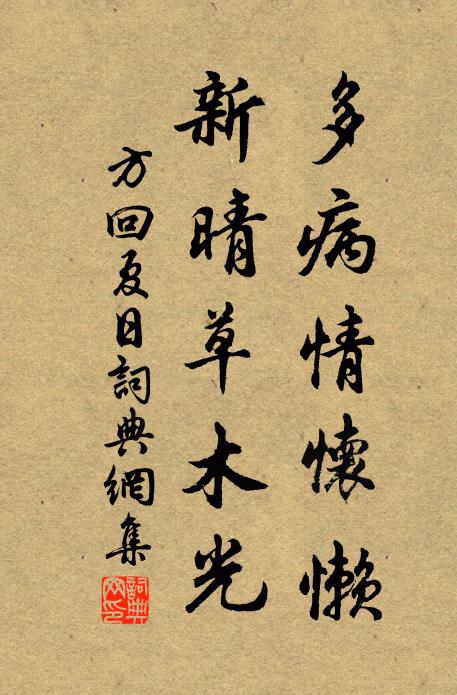 多病情懷懶
新晴草木光
方回夏日詞典網集
詞典
网印